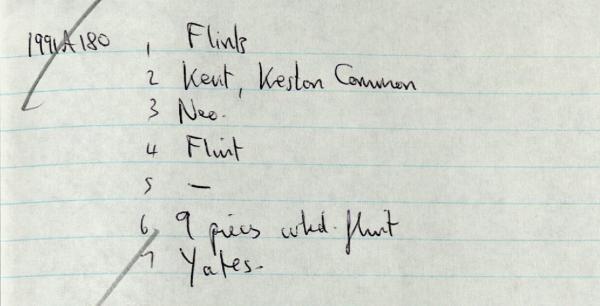 1991A180 1 Flints
2 Kent, Keston Common
3 Neo.
4 Flint
5 —
6 9 pieces wkd. flint
7 Yates.